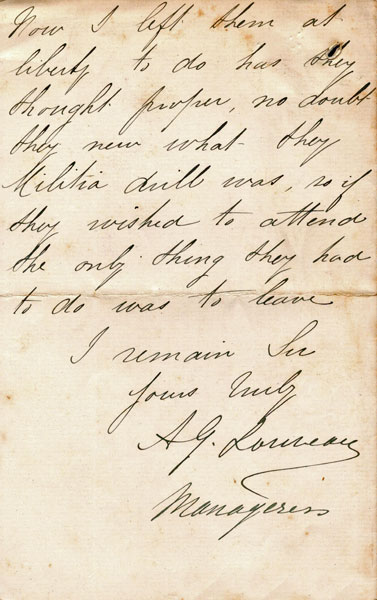 Now I left them at
liberty to do has they
thought proper, no doubt
they new what they
Militia drill was, so if
they wished to attend
the only thing they had
to do was to leave
I remain Sir
Yours Truly
A G.
Manageress